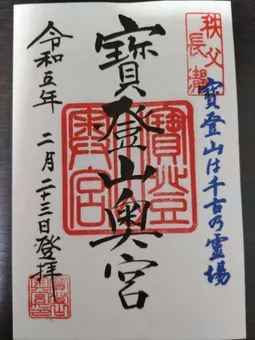 秩父
長瀞
寶登山は千古の霊場
寶登山奥宮
令和五年
二月二十三日登拝
寶登
山
奥宮